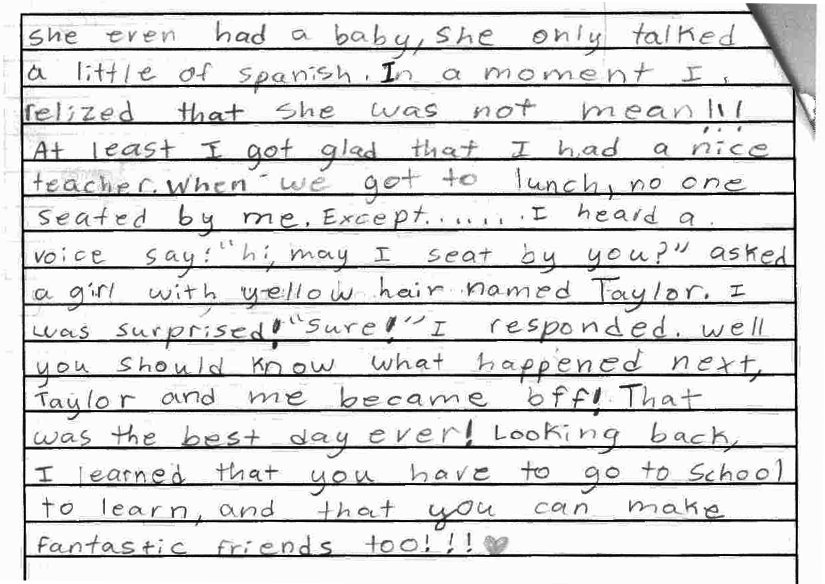 she even had a baby, she only talked
a little of spanish. In a moment I
relized that she was not mean!!!
At least I got glad that I had a nice
teacher. When we got to lunch, no one
seated by me. Except....... I heard a
voice say: "hi, may I seat by you?" asked
a girl with yellow hair named Taylor. I
was surprised! "Sure!" I responded. well
you should know what happened next,
Taylor and me became bff! That
was the best day ever! Looking back,
I learned that you have to go to school
to learn, and that you can make
fantastic friends too!!!